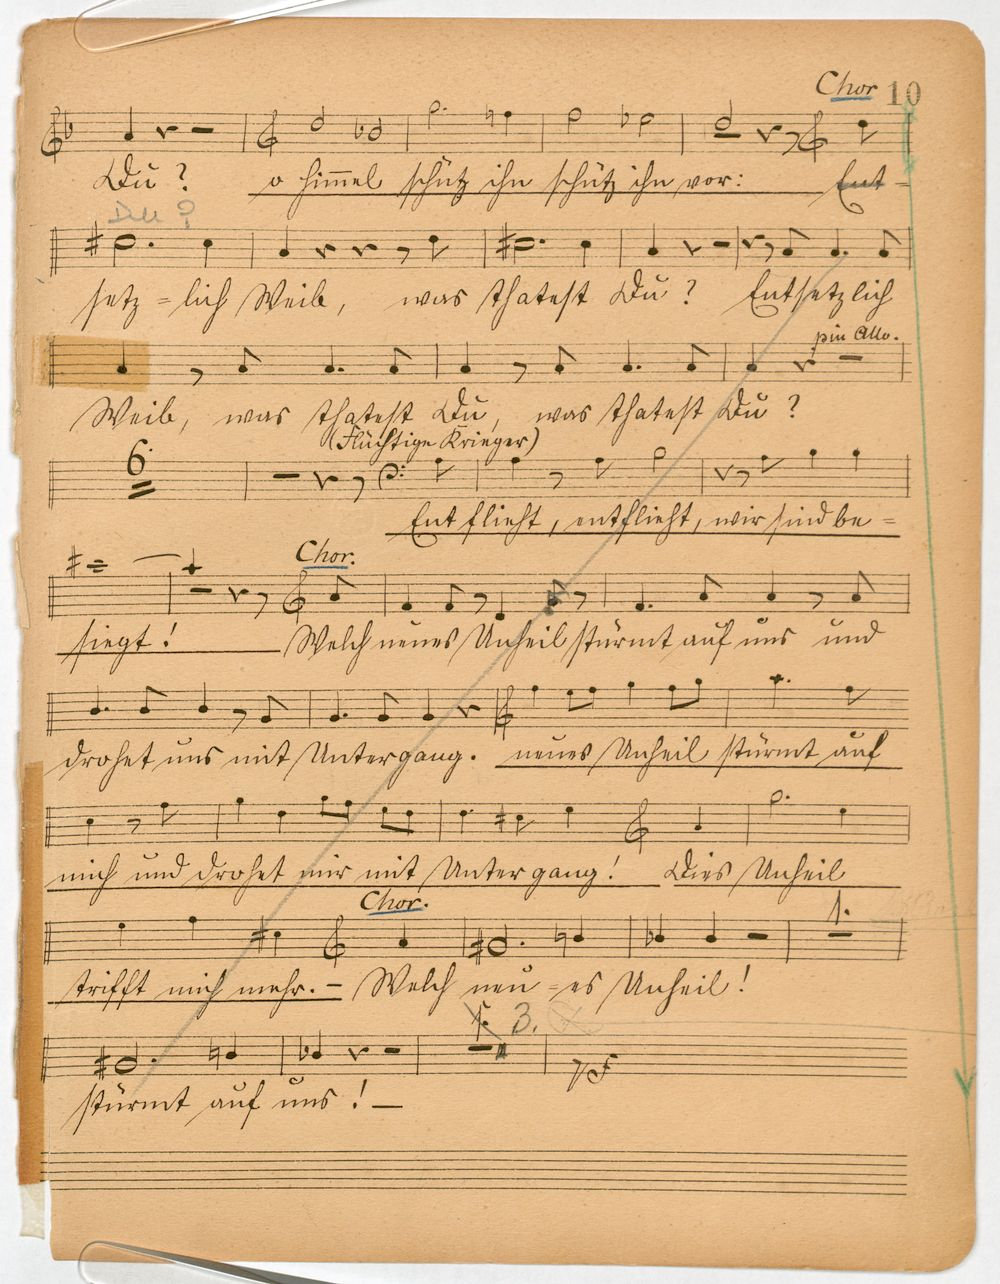 Chor 10
Du? o Himmel schütz ihn schütz ihn vor: Ent-
Du?
setz=lich Weib, was thatest Du? Entsetzlich
piu Allo.
Weib, was thatest Du, was thatest Du?
(Flüchtige Krieger)
6.
Entflieht, entflieht, wir sind be=
Chor.
siegt! Welch neues Unheil stürmt auf uns und
drohet uns mit Untergang. neues Unheil stürmt auf
mich und drohet mir mit Untergang! Dies Unheil
Chor.
1.
trifft mich mehr. – Welch neu=es Unheil!
1. 3.
stürmt auf uns! –